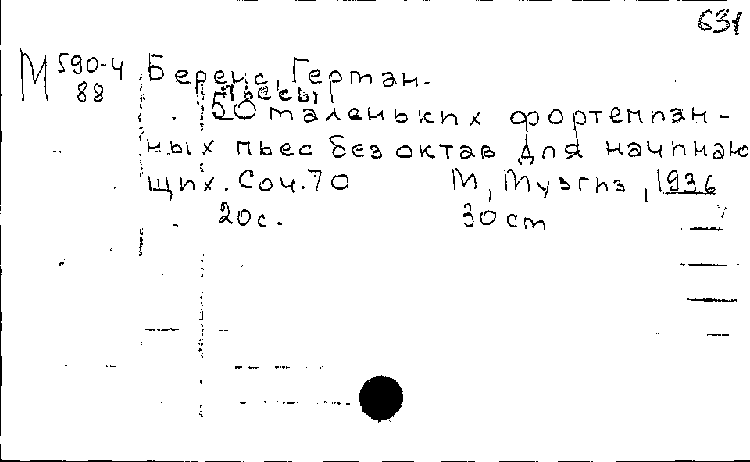 631
М 590-4
88
Беренс, Герман.
Пьесы
50 маленьких фортепиан-
ных пьес без октав для начинаю
щих. Соч. 70 М, Музгиз, 1936
20с. 30 см